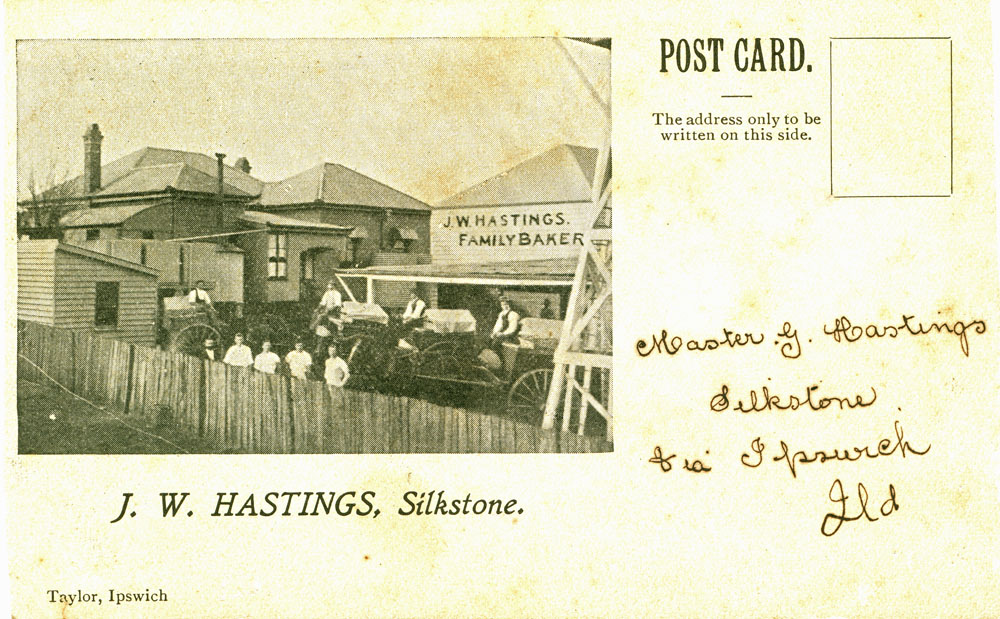 POST CARD.
The address only to be
written on this side.
J. W. HASTINGS.
FAMILY BAKER
Master G. Hastings
Silkstone.
Via Ipswich
Qld
J. W. HASTINGS, Silkstone.
Taylor, Ipswich